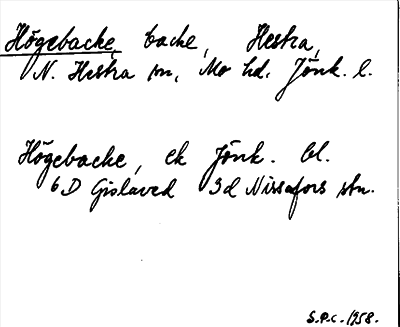 Högebacke, backe, Hestra,
N. Hestra sn, Mo hd. Jönk. l.
Högebacke, ek Jönk. bl.
6D Gislaved 3d Nissafors stn.
S.P.C. 1958.